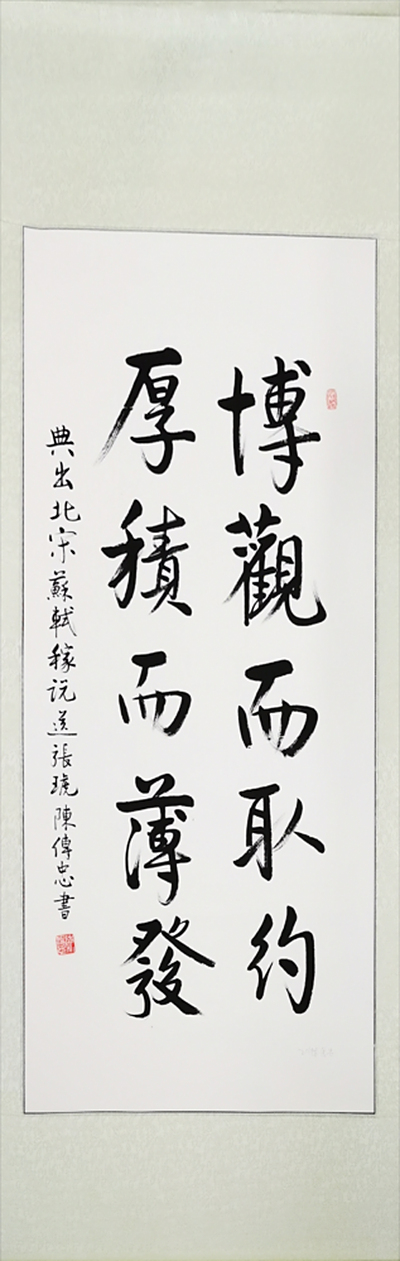 博觀而取約
厚積而薄發
典出北宋蘇軾稼说送張琥陳傳忠書